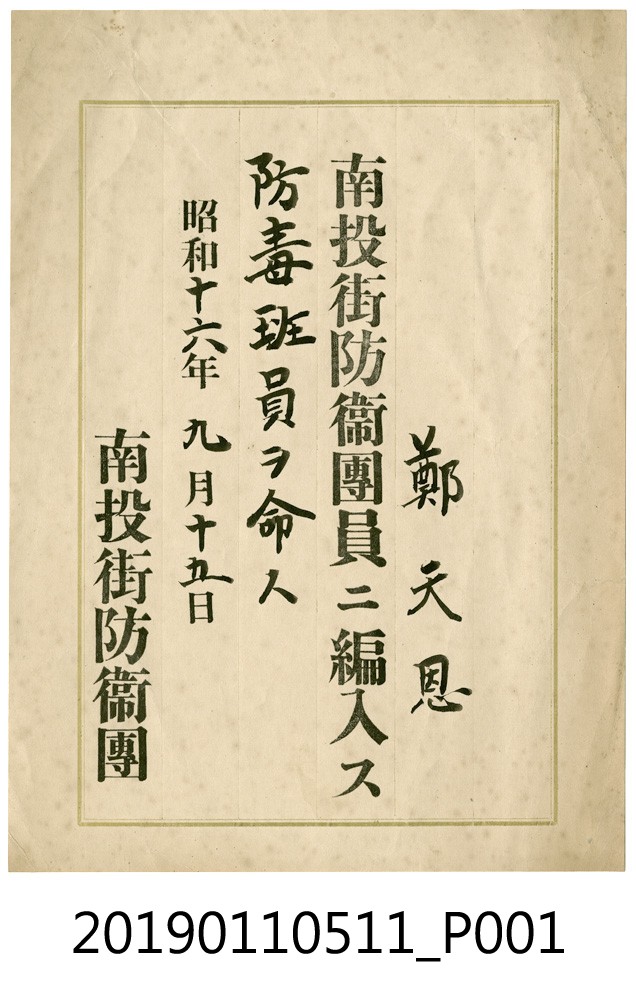 鄭天恩
南投街防衞團員ニ編入ス
防毒班員ヲ命ス
昭和十六年九月十五日
南投街防衞團
20190110511_P001